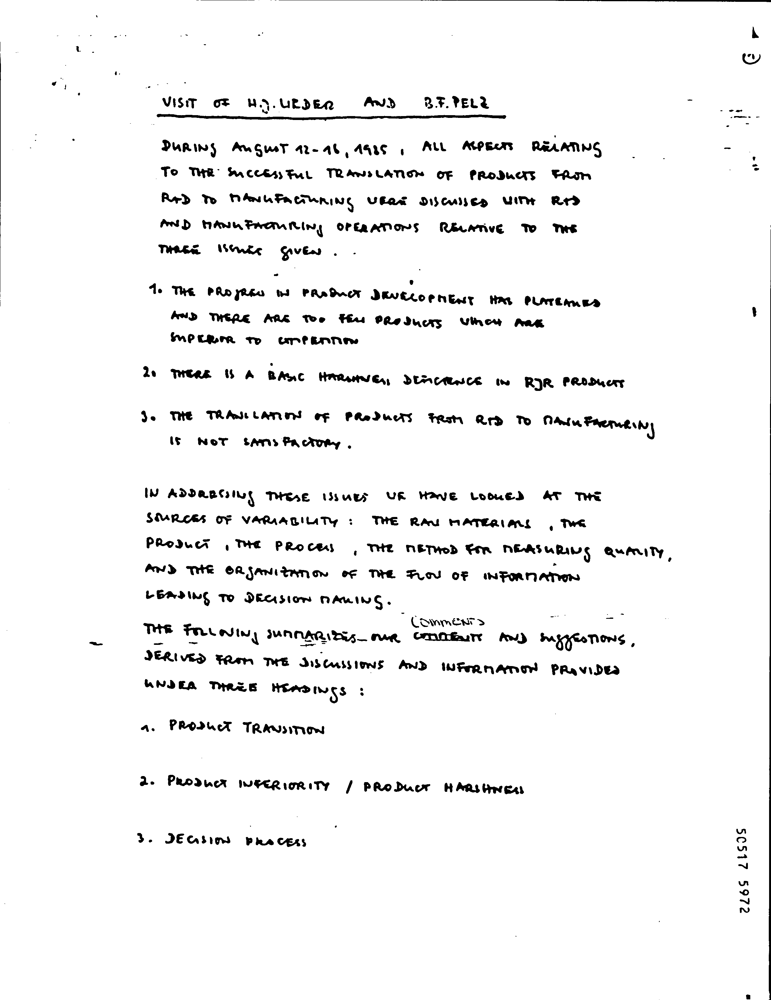 (1)
VISIT OF H.J. LIEDER AND B.F. PELZ
DURING AUGUST 12-16, 1985, ALL ASPECTS RELATING
TO THE SUCCESSFUL TRANSLATION OF PRODUCTS FROM
R+D TO MANUFACTURING WERE DISCUSSED WITH R+D
AND MANUFACTURING OPERATIONS RELATIVE TO THE
THREE ISSUES GIVEN . .
1. THE PROGRESS IN PRODUCT DEVELOPMENT HAS PLATEAUED
AND THERE ARE TOO FEW PRODUCTS WHICH ARE
SUPERIOR TO COMPETITION
2. THERE IS A BASIC HARSHNESS DIFFERENCE IN RJR PRODUCTS
3. THE TRANSLATION OF PRODUCTS FROM R+D TO MANUFACTURING
IS NOT SATISFACTORY.
IN ADDRESSING THESE ISSUES WE HAVE LOOKED AT THE
SOURCES OF VARIABILITY : THE RAW MATERIALS , THE
PRODUCT , THE PROCESS , THE METHOD FOR MEASURING QUALITY,
AND THE ORGANIZATION OF THE FLOW OF INFORMATION
LEADING TO DECISION MAKING.
COMMENTS
THE FOLLOWING SUMMARIZES OUR AND SUGGESTIONS,
DERIVED FROM THE DISCUSSIONS AND INFORMATION PROVIDED
UNDER THREE HEADINGS :
1. PRODUCT TRANSITION
2. PRODUCT INFERIORITY / PRODUCT HARSHNESS
3. DECISION PROCESS
50517 5972